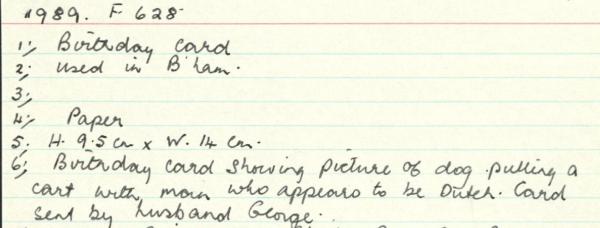 1989. F 628
1; Birthday card
2; used in B'ham.
3;
4; Paper
5. H. 9.5 cm x W. 14 cm.
6; Birthday card showing picture of dog pulling a
cart with man who appears to be Dutch. Card
sent by husband George.